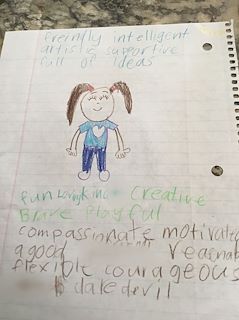 freindly intelligent
artistic supportive
full of Ideas
fun loving kind Creative
Brave Playful
compassinnate motivated
a good
flexible courageous
daledevil